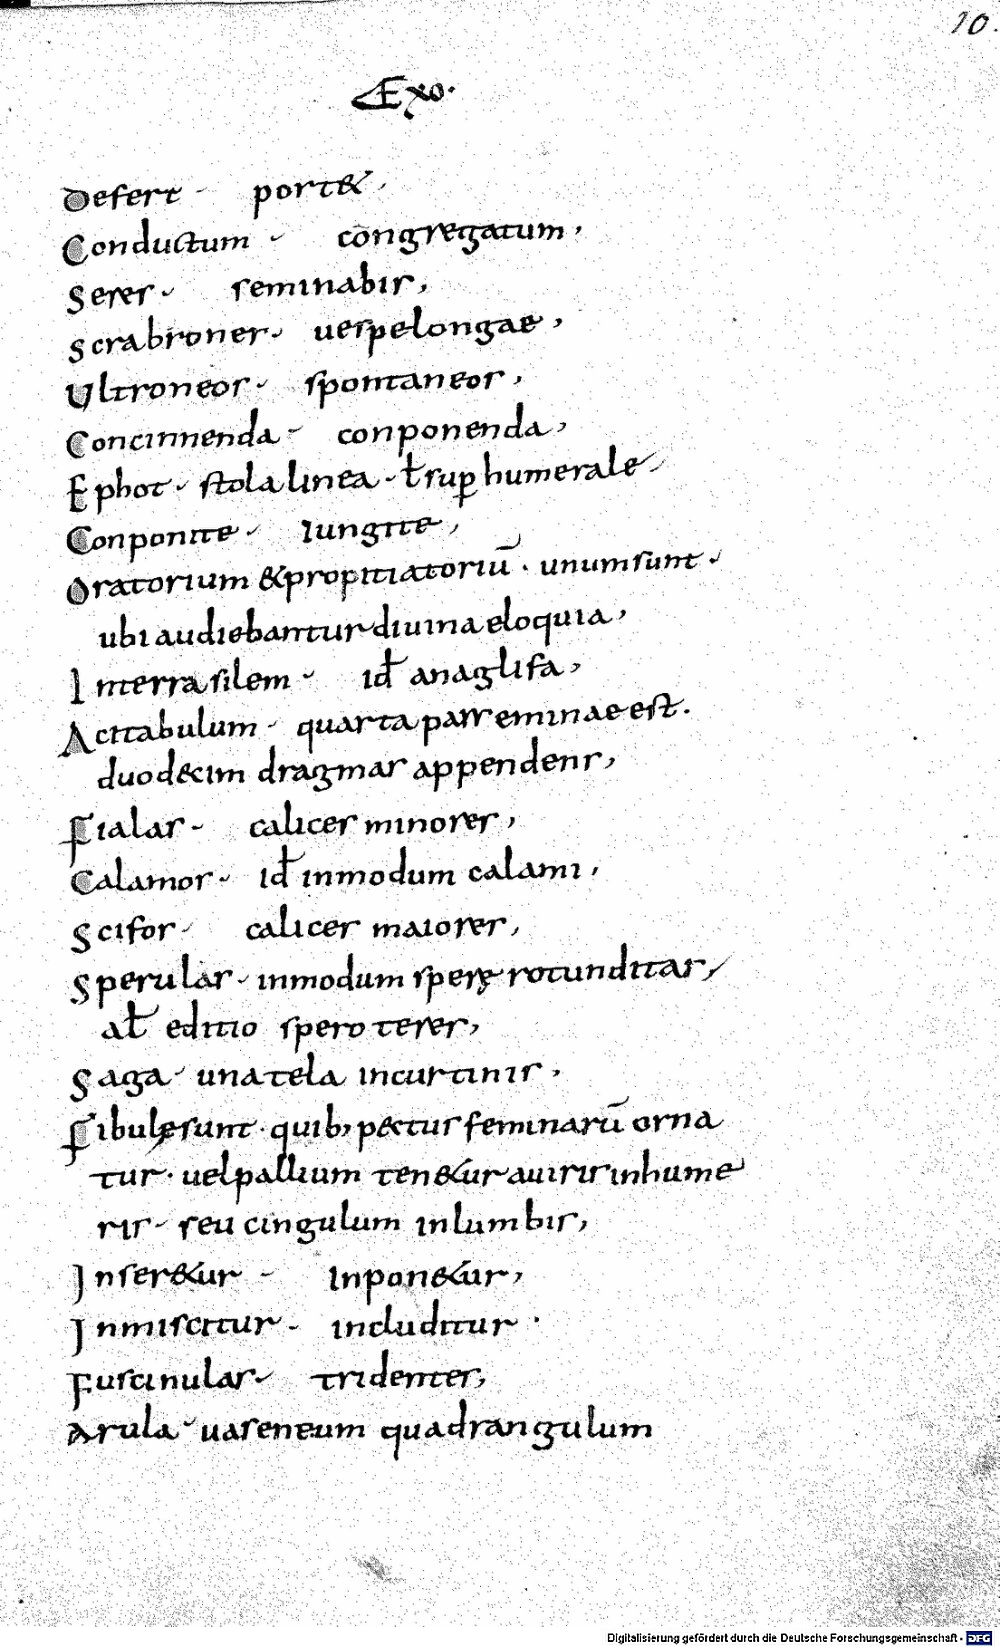 10.
Exo.
Defert · port&,
Conductum · congregatum,
Seres · seminabis,
Scrabrones · uespelongae,
Ultroneos · spontaneos,
Concinnenda · conponenda,
Ephot · stola linea · ł sup humerale
Conponite · iungite,
Oratorium & propitiatoriū · unum sunt ·
ubi audiebantur diuina eloquia,
In terra silem · id anaglifa,
Acitabulum · quarta pars eminae est.
duodecim dragmas appendens,
Fialas · calices minores,
Calamos · id inmodum calami,
Scifos · calices maiores,
Sperulas · inmodum sperę rotunditas,
al editio spero teres,
Saga · una tela in curtinis,
Fibulę sunt · quib, pectus feminarū orna
tur · uel pallium ten&ur a uiris in hume
ris · seu cingulum in lumbis,
Inser&ur · inpon&ur,
Inmiscitur · includitur ·
Fuscinulas · tridentes,
Arula · uas eneum quadrangulum
Digitalisierung gefördert durch die Deutsche Forschungsgemeinschaft - DFG